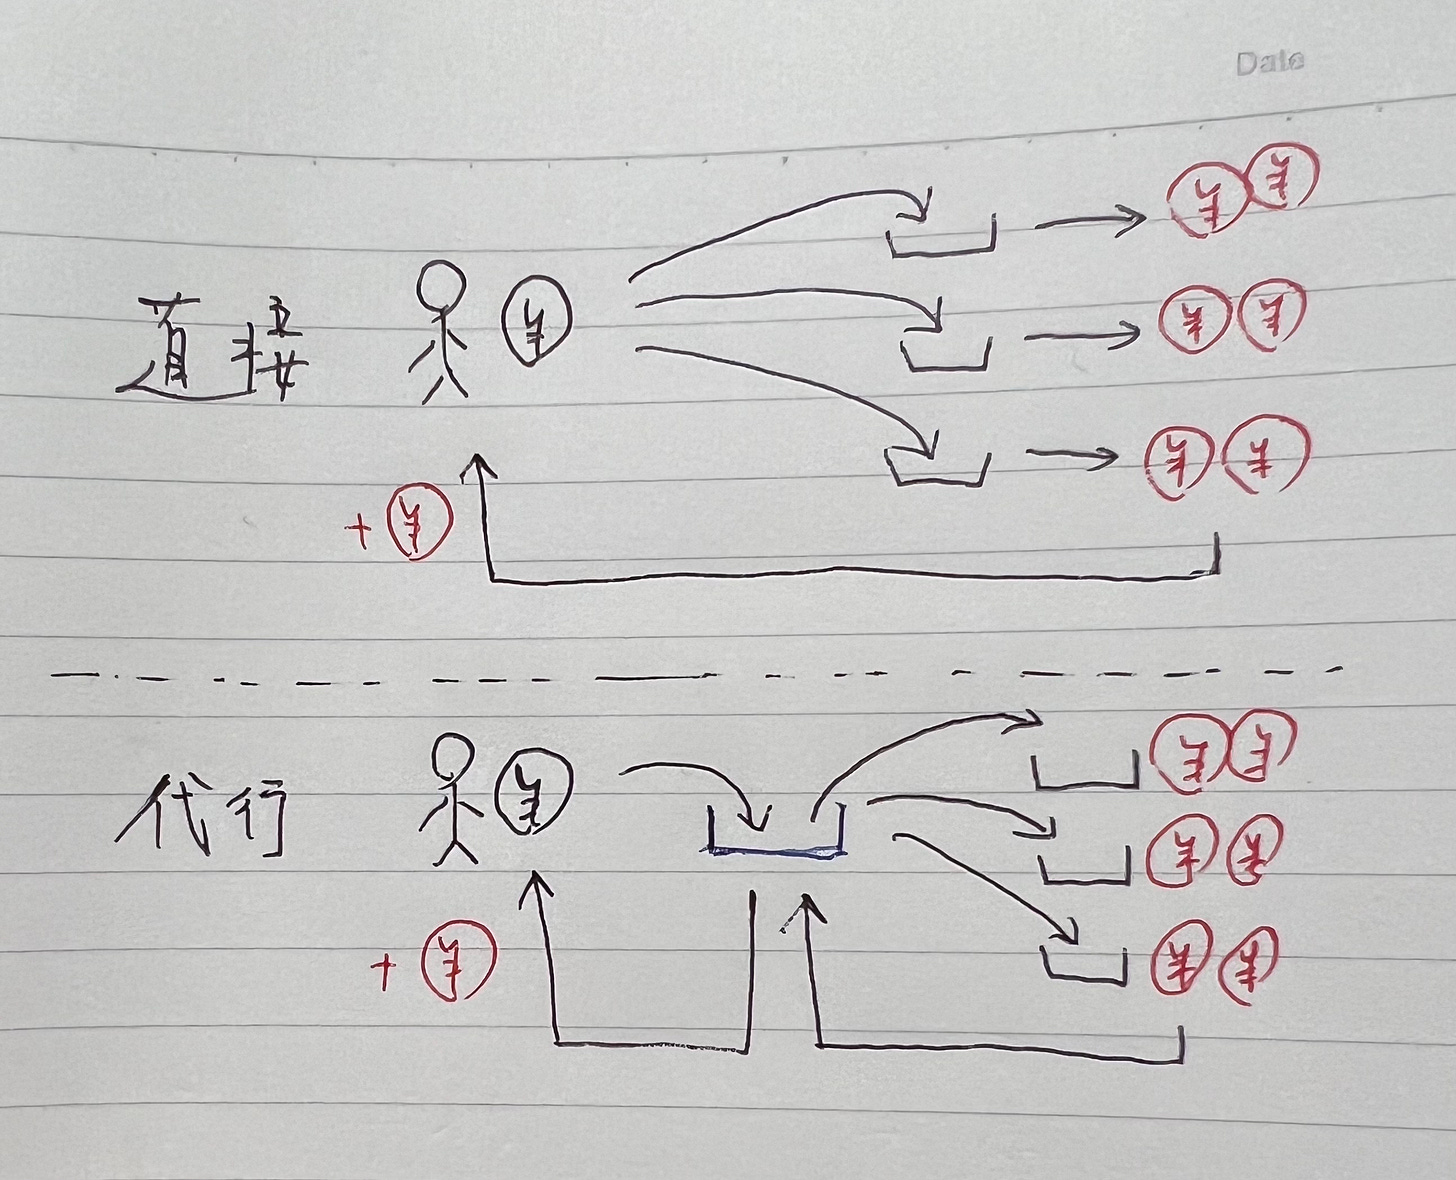 Date
¥ ¥
直接 ¥ ¥ ¥
+ ¥ ¥ ¥
代行 ¥ ¥ ¥
¥ ¥
+ ¥ ¥ ¥